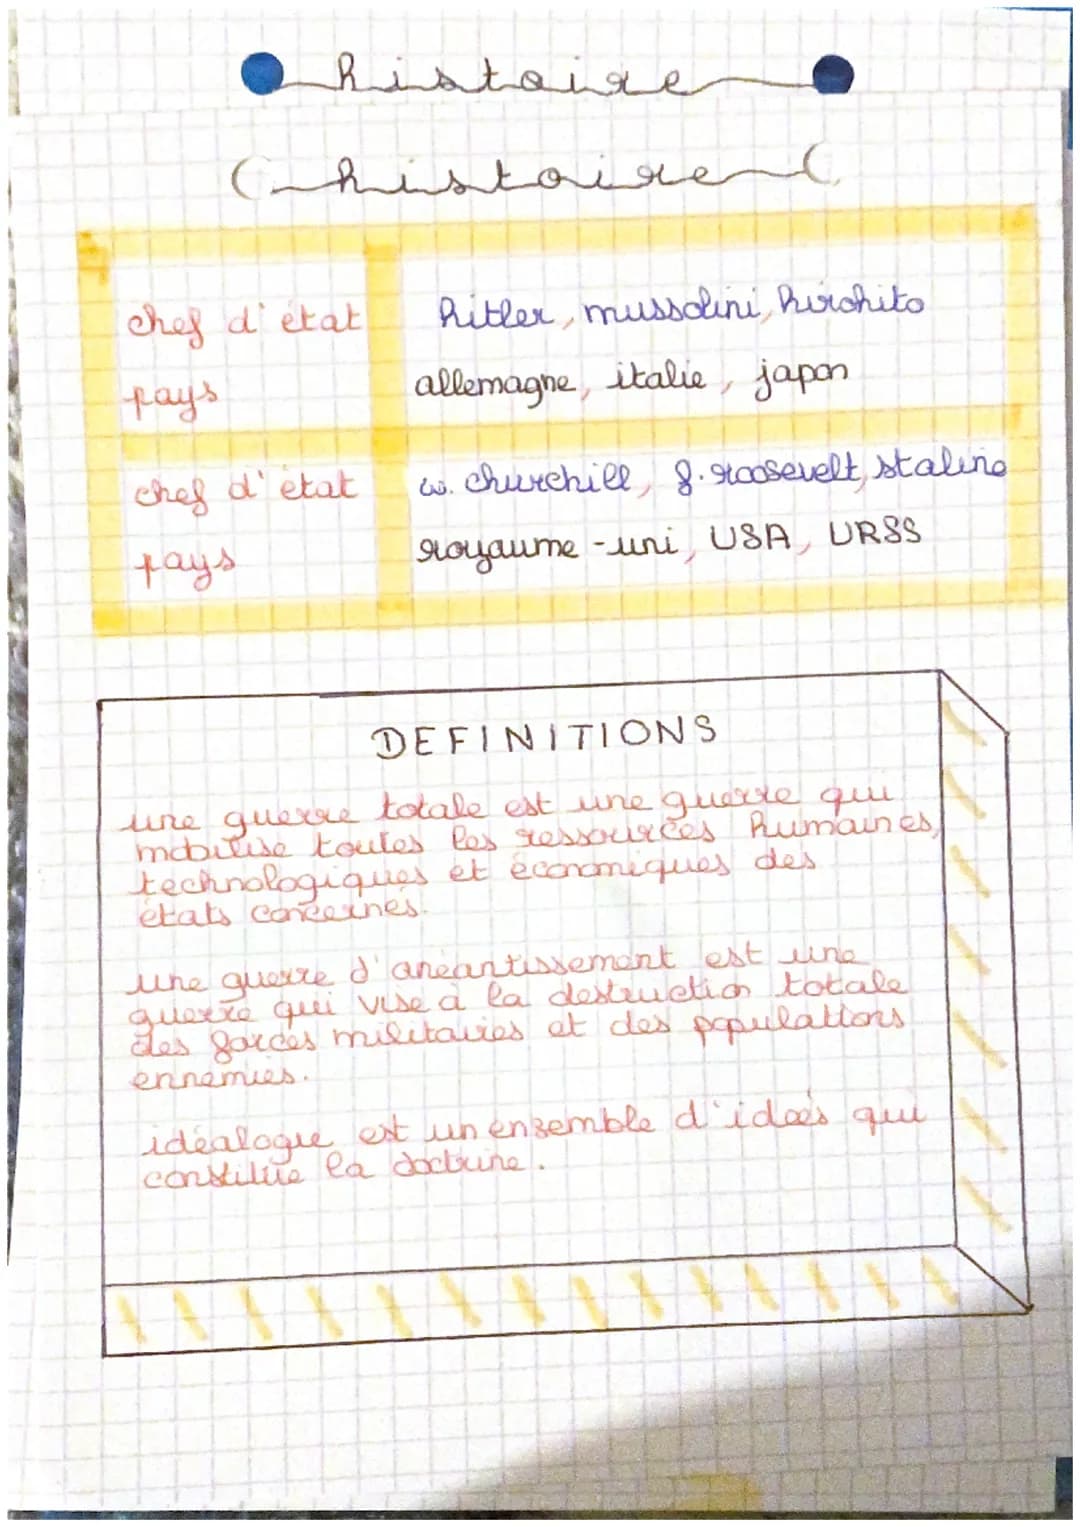 histoire
histoire
chef d'état
hitler, mussolini, hirohito
pays
allemagne, italie, japon
chef d'état
w. churchill, f. roosevelt, staline
pays
royaume-uni, USA, URSS
DEFINITIONS
une guerre totale est une guerre qui
mobilise toutes les ressources humaines,
technologiques et économiques des
états concernés.
une guerre d'anéantissement est une
guerre qui vise à la destruction totale
des forces militaires et des populations
ennemies.
idéologie est un ensemble d'idées qui
constitue la doctrine.